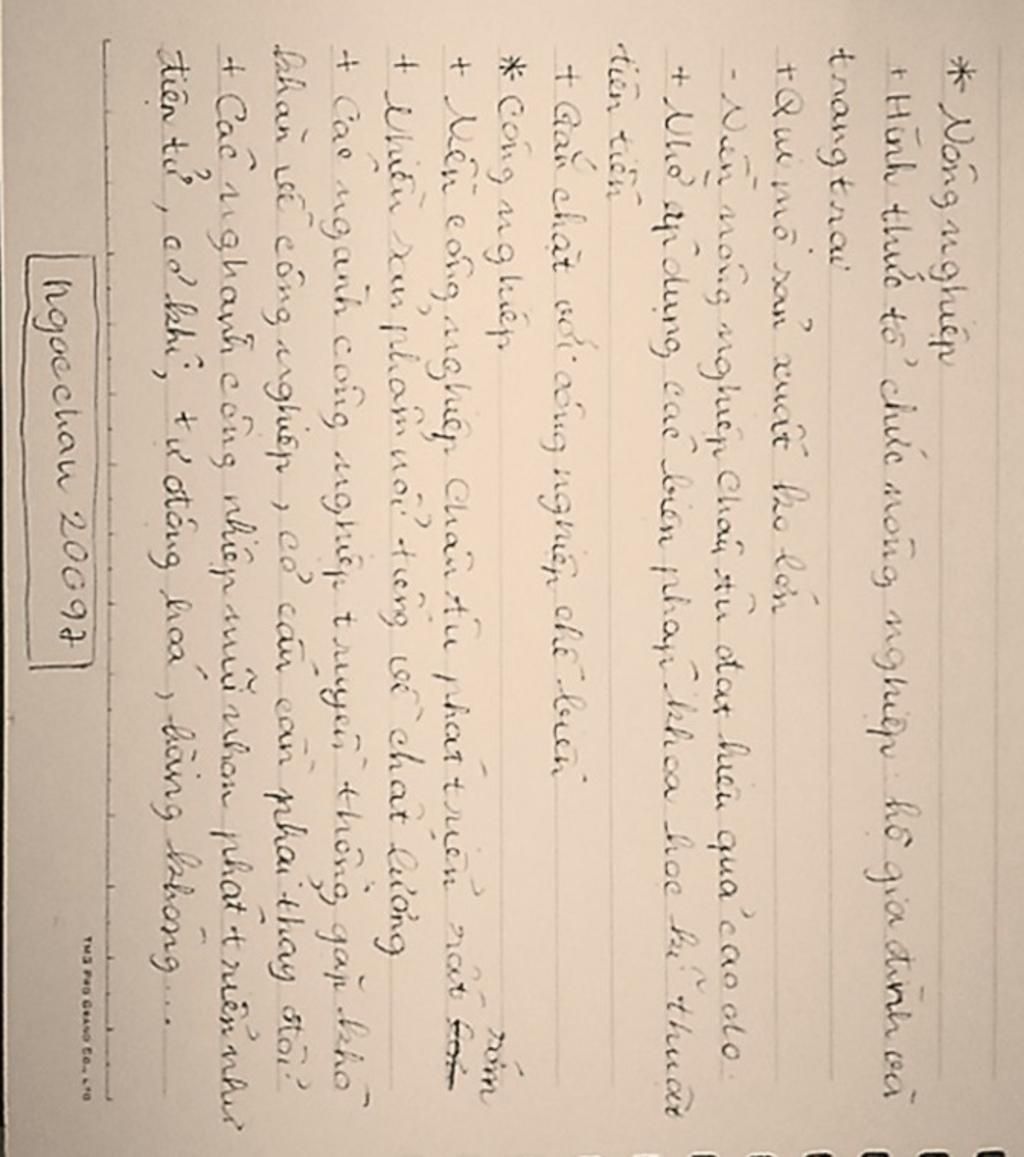 * Nông nghiệp
+ Hình thức tổ chức nông nghiệp: hộ gia đình và
trang trại
+ Qui mô sản xuất ko lớn
- Nền nông nghiệp châu Âu đạt hiệu quả cao do:
+ Nhờ áp dụng các biện pháp khoa học kĩ thuật
tiên tiến
+ Gắn chặt với công nghiệp chế biến
* Công nghiệp
+ Nền công nghiệp Châu Âu phát triển rất sớm
+ Nhiều sản phẩm nổi tiếng về chất lượng
+ Các ngành công nghiệp truyền thống gặp khó
khăn về công nghiệp, cơ cấu cần phải thay đổi
+ Các nghành công nhiệp mũi nhọn phát triển như
điện tử, cơ khí, tự động hoá, hàng không...
ngocchau 2009
TMS PRO GRAND CO., LTD